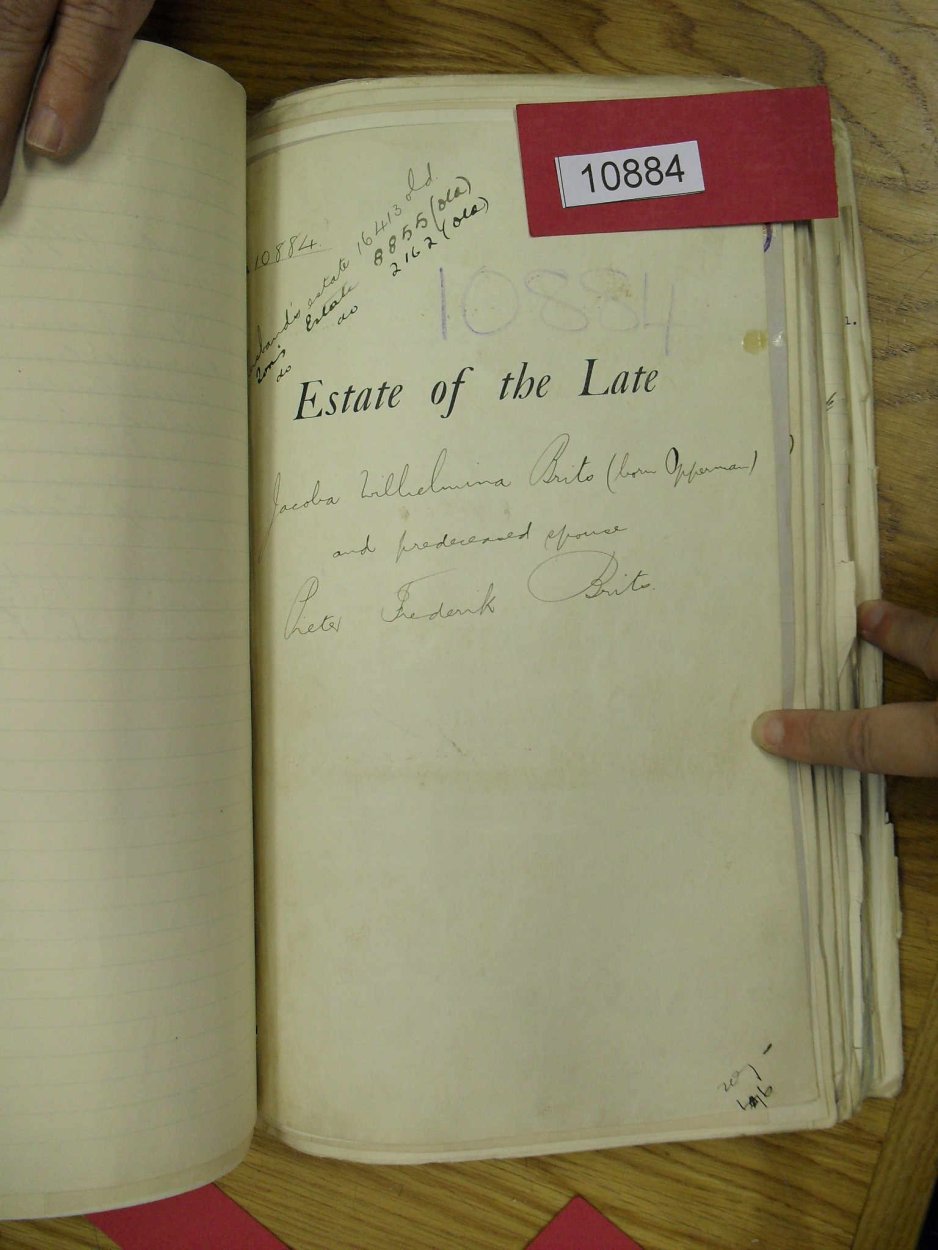 10884
10884.
husband's estate 16413 old.
Son's Estate 8855 (old)
do do 2162 (old)
10884
Estate of the Late
Jacoba Wilhelmina Brits (born Opperman)
and predeceased spouse
Pieter Frederik Brits.